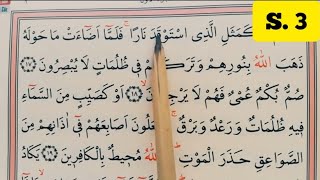 S. 3
كَمَثَلِ الَّذِي اسْتَوْقَدَ نَارًا ۚ فَلَمَّا اَضَٓاءَتْ مَا حَوْلَهُ
ذَهَبَ اللّٰهُ بِنُورِهِمْ وَتَرَكَهُمْ فِي ظُلُمَاتٍ لَا يُبْصِرُونَ
صُمٌّ بُكْمٌ عُمْيٌ فَهُمْ لَا يَرْجِعُونَ اَوْ كَصَيِّبٍ مِنَ السَّمَٓاءِ
فِيهِ ظُلُمَاتٌ وَرَعْدٌ وَبَرْقٌ ۚ يَجْعَلُونَ اَصَابِعَهُمْ فِٓي اٰذَانِهِمْ مِنَ
الصَّوَاعِقِ حَذَرَ الْمَوْتِ اللّٰهُ مُحِيطٌ بِالْكَافِرِينَ يَكَادُ